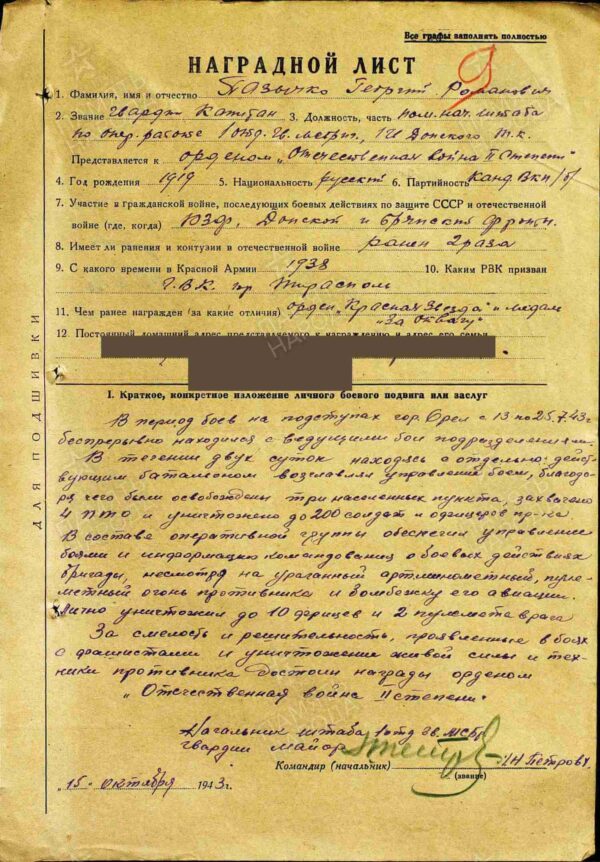 Все графы заполнять полностью
НАГРАДНОЙ ЛИСТ
1. Фамилия, имя и отчество Георгий Романович
2. Звание Гвардии Капитан 3. Должность, часть пом. нач. штаба
по опер. работе 1 отд. гв. Донского т.к.
Представляется к орденом „Отечественная война II степени"
4. Год рождения 1919 5. Национальность русский 6. Партийность Канд ВКП/б/
7. Участие в гражданской войне, последующих боевых действиях по защите СССР и отечественной
войне (где, когда) ЮЗФ, Донской и Брянский фронты.
8. Имеет ли ранения и контузии в отечественной войне ранен 2 раза
9. С какого времени в Красной Армии 1938 10. Каким РВК призван
Г.В.К. гор Тирасполь
11. Чем ранее награжден (за какие отличия) орден „Красная Звезда" и медаль
„За Отвагу"
12. Постоянный домашний адрес представляемого к награждению и адрес его семьи
ДЛЯ ПОДШИВКИ
I. Краткое, конкретное изложение личного боевого подвига или заслуг
В период боев на подступах гор. Орел с 13 по 25.7.43г.
беспрерывно находился с ведущими бои подразделениями.
В течении двух суток находясь с отдельно дейст-
вующим батальоном возглавлял управление боем, благода-
ря чего были освобождены три населенных пункта, захвачено
4 ПТО и уничтожено до 200 солдат и офицеров пр-ка
В составе оперативной группы обеспечил управление
боями и информацию командования о боевых действиях
бригады, несмотря на ураганный артминометный, пуле-
метный огонь противника и бомбежку его авиации.
Лично уничтожил до 10 фрицев и 2 пулемета врага
За смелость и решительность, проявленные в боях
с фашистами и уничтожение живой силы и тех-
ники противника достоин награды орденом
„Отечественная война II степени".
Начальник штаба 1 отд. гв. МСБр
гвардии майор
Командир (начальник) /Н Петров/
(звание)
„15" октября 1943 г.